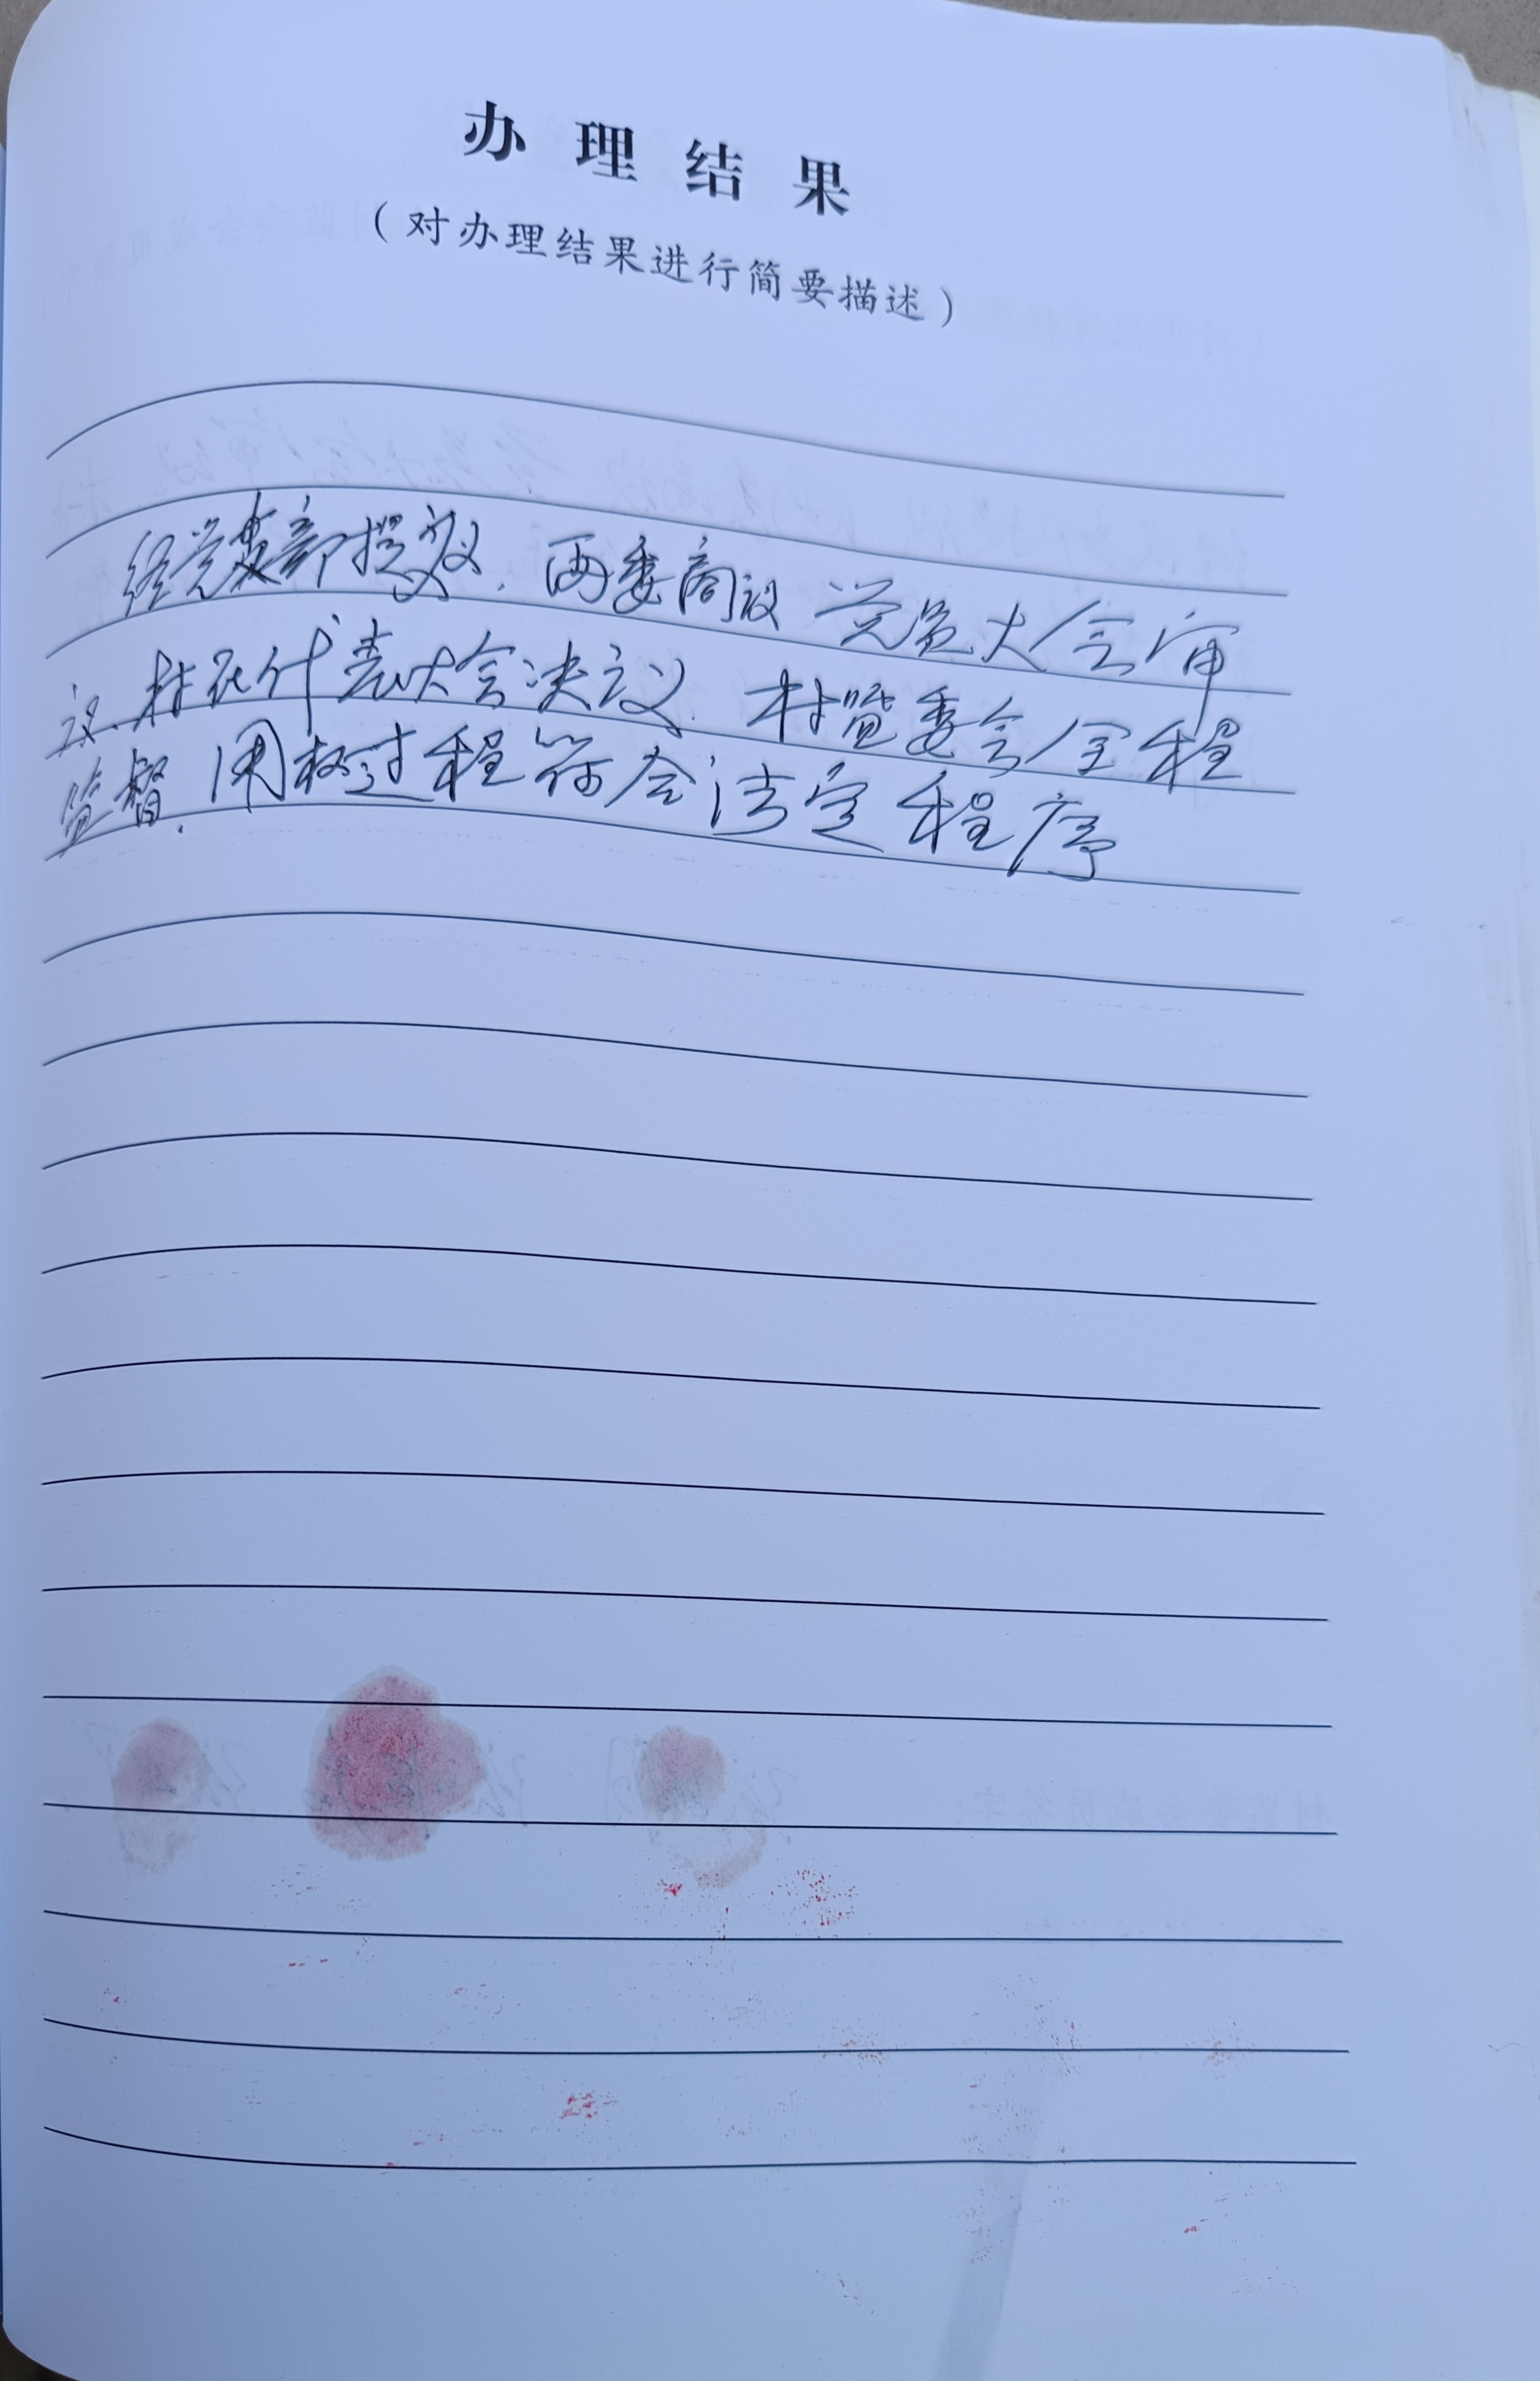 办理结果
（对办理结果进行简要描述）
经党支部提议.两委商议 党员大会审
议.村民代表大会决议.村监委会全程
监督.用权过程符合法定程序
村监委会成员签字：